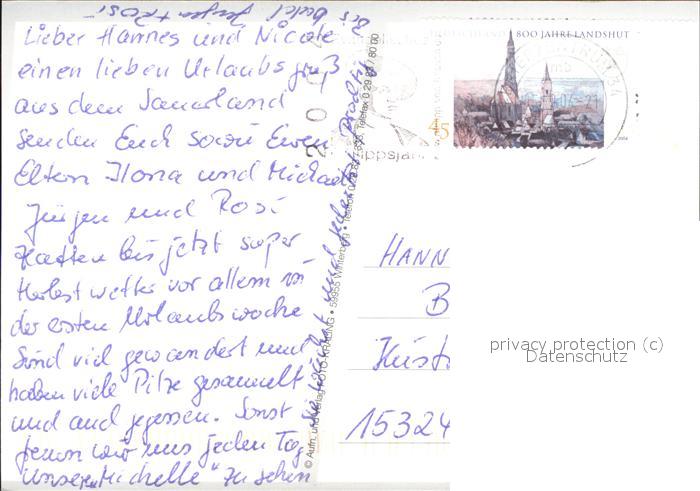 Lieber Hannes und Nicole
einen lieben Urlaubsgruß
aus dem Sauerland
senden Euch sowie Euren
Eltern Ilona und Michael
Jürgen und Rosi
Hatten bis jetzt super
Herbstwetter vor allem in
der ersten Urlaubswoche
Sind viel gewandert und
haben viele Pilze gesammelt
und auch gegessen. Sonst
freuen wir uns jeden Tag
Unsere „Michelle“ zu sehen
Bis bald Jürgen + Rosi
© Aufn. und Verlag FOTO-KRÄLING • 59955 Winterberg • Telefon
Telefax 0 29 83 / 80 00
DEUTSCHLAND 800 JAHRE LANDSHUT
45
HANN
B
Küst
15324
privacy protection (c)
Datenschutz